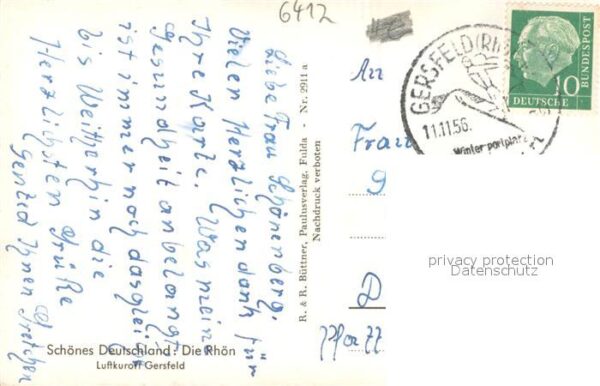 6412
Liebe Frau Schönenberg.
Vielen Herzlichen dank für
Ihre Karte. Was mein
Gesundheit anbelangt
ist immer noch das gleiche
bis Weitherhin die
Herzlichsten Grüße
Ihnen Gretchen
Schönes Deutschland: Die Rhön
Luftkurort Gersfeld
R. & R. Büttner, Paulusverlag, Fulda - Nr. 2911 a
Nachdruck verboten
An
Frau
D
GERSFELD (RHÖN)
11.11.56.
Wintersportplatz
10
DEUTSCHE
BUNDESPOST
privacy protection
Datenschutz